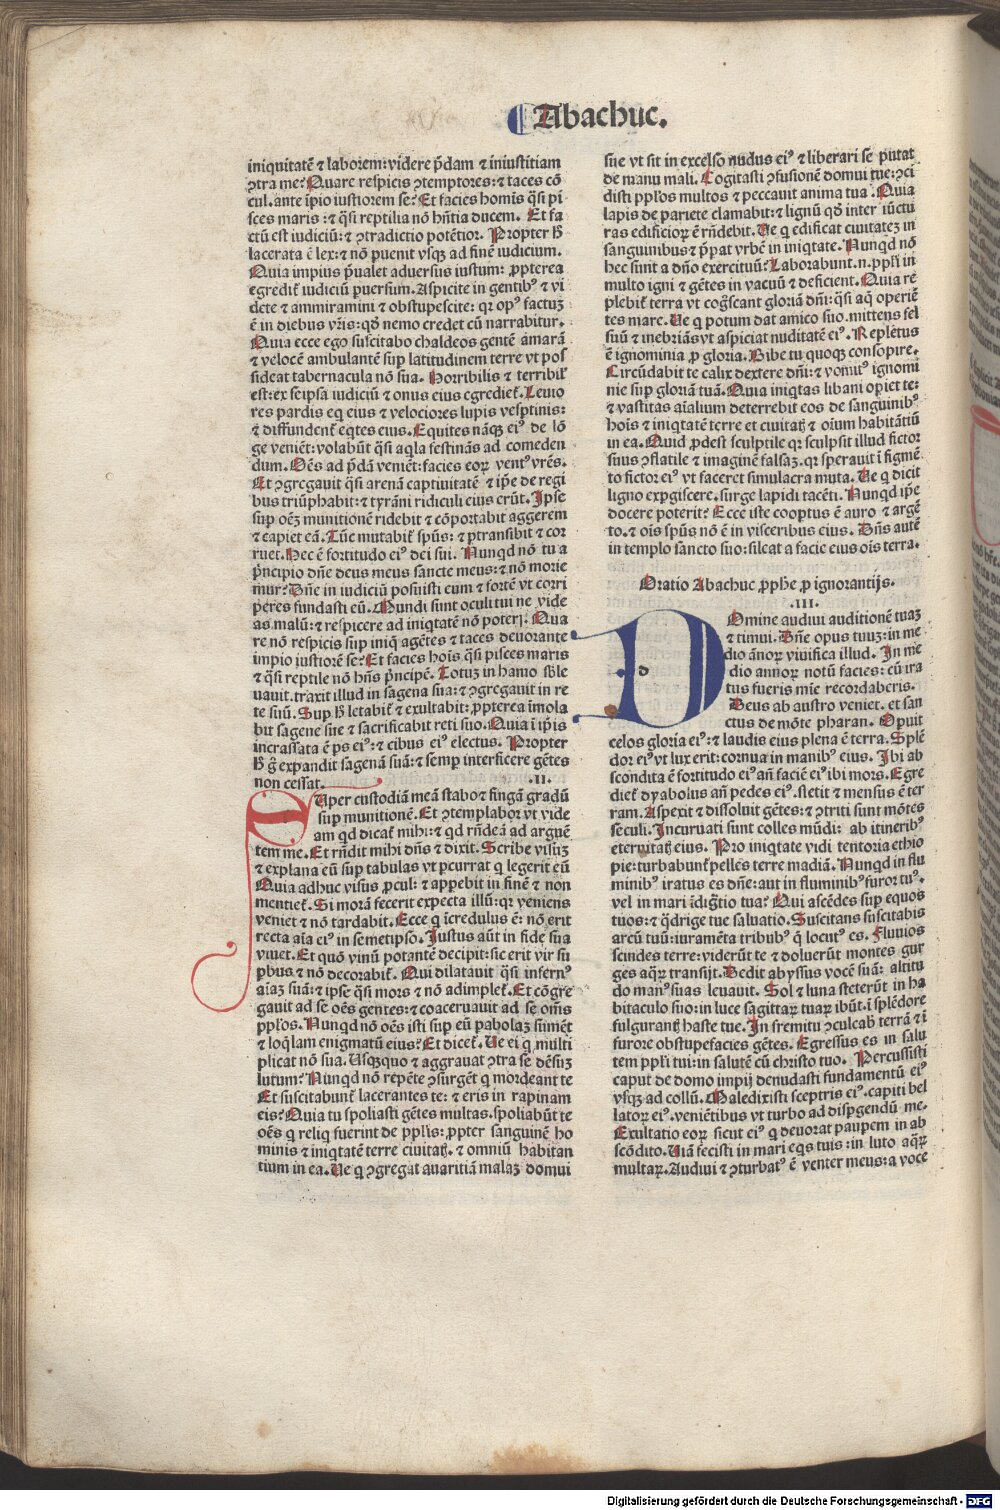 Abachuc.
iniquitatē ⁊ laborem: videre p̄dam ⁊ iniustitiam
ꝯtra me? Quare respicis ꝯtemptores: ⁊ taces cō
cul. ante īpio iustiorem se? Et facies homīs q̄si pi
sces maris: ⁊ q̄si reptilia nō hn̄tia ducem. Et fa
ctū est iudiciū: ⁊ ꝯtradictio potētior. Propter ħ
lacerata ē lex: ⁊ nō puenit vsqꝫ ad finē iudicium.
Quia impius p̄ualet aduersus iustum: ꝓpterea
egredit̄ iudiciū ꝑuersum. Aspicite in gentibꝰ ⁊ vi
dete ⁊ ammiramini ⁊ obstupescite: qꝛ opꝰ factuꝫ
ē in diebus vr̄is: qđ nemo credet cū narrabitur.
Quia ecce ego suscitabo chaldeos gentē amarā
⁊ velocē ambulantē sup̄ latitudinem terre vt pos
sideat tabernacula nō sua. Horribilis ⁊ terribił
est: ex seipsa iudiciū ⁊ onus eius egrediet̄. Leuio
res pardis eq̄ eius ⁊ velociores lupis vesꝑtinis:
⁊ diffundent̄ eq̄tes eius. Equites nāqꝫ eiꝰ de lō
ge veniēt: volabūt q̄si aq̄la festinās ad comeden
dum. Oēs ad p̄dā veniēt: facies eoꝝ ventꝰ vrēs.
Et ꝯgregauit q̄si arenā captiuitatē ⁊ ip̄e de regi
bus triūphabit: ⁊ tyrāni ridiculi eius erūt. Ipse
sup̄ oēꝫ munitionē ridebit ⁊ cōportabit aggerem
⁊ capiet eā. Tūc mutabit̄ sp̄us: ⁊ ꝑtransibit ⁊ cor
ruet. Hec ē fortitudo eiꝰ dei sui. Nunqd nō tu a
p̄ncipio dn̄e deus meus sancte meus: ⁊ nō morie
mur? Dn̄e in iudiciū posuisti eum ⁊ fortē vt corri
ꝑeres fundasti eū. Mundi sunt oculi tui ne vide
as malū: ⁊ respicere ad iniqtatē nō poterꝭ. Qua
re nō respicis sup̄ iniq̄ agētes ⁊ taces deuorante
impio iustiorē se? Et facies hoīs q̄si pisces maris
⁊ q̄si reptile nō hn̄s p̄ncipē. Totuꝫ in hamo sb̄le
uauit. traxit illud in sagena sua: ⁊ ꝯgregauit in re
te suū. Sup̄ ħ letabit̄ ⁊ exultabit: ꝓpterea īmola
bit sagene sue ⁊ sacrificabit reti suo. Quia ī ip̄is
incrassata ē ps eiꝰ: ⁊ cibus eiꝰ electus. Propter
ħ g̊ expandit sagenā suā: ⁊ semꝑ interficere gētes
non cessat. .II.
Super custodiā meā stabo ⁊ fingā gradū
sup̄ munitionē. Et ꝯtemplabor vt vide
am qd dicat̄ mihi: ⁊ qd rn̄deā ad arguē
tem me. Et rn̄dit mihi dn̄s ⁊ dixit. Scribe visuꝫ
⁊ explana eū sup̄ tabulas vt ꝑcurrat q̄ legerit eū
Quia adhuc visus ꝓcul: ⁊ appebit in finē ⁊ non
mentiet̄. Si morā fecerit expecta illū: qꝛ veniens
veniet ⁊ nō tardabit. Ecce q̄ īcredulus ē: nō erit
recta aīa eiꝰ in semetipso. Justus aūt in fide sua
viuet. Et quō vinū potantē decipit: sic erit vir su
ꝑbus ⁊ nō decorabit̄. Qui dilatauit q̄si infernꝰ
aīaꝫ suā: ⁊ ipse q̄si mors ⁊ nō adimplet̄. Et cōgre
gauit ad se oēs gentes: ⁊ coaceruauit ad se om̄s
pp̄los. Nunqd nō oēs isti sup̄ eū ꝑabolaꝫ sumēt
⁊ loq̄lam enigmatū eius? Et dicet̄. Ve ei q̄ multi
plicat nō sua. Usqꝫquo ⁊ aggrauat ꝯtra se dēsuꝫ
lutum? Nunqd nō repēte ꝯsurgēt q̄ mordeant te
Et suscitabunt̄ lacerantes te: ⁊ eris in rapinam
eis? Quia tu spoliasti gētes multas. spoliabūt te
oēs q̄ reliq̄ fuerint de pp̄lis: ꝓpter sanguinē ho
minis ⁊ iniqtatē terre ciuitatꝭ. ⁊ omniū habitan
tium in ea. Ve q̄ ꝯgregat auaritiā malaꝫ domui
sue vt sit in excelso nudus eiꝰ ⁊ liberari se putat
de manu mali. Cogitasti ꝯfusionē domui tue: ꝯci
disti pp̄los multos ⁊ peccauit anima tua. Quia
lapis de pariete clamabit: ⁊ lignū qđ inter iūctu
ras edificioꝝ ē rn̄debit. Ve q̄ edificat ciuitateꝫ in
sanguinibus ⁊ p̄ꝑat vrbē in iniqtate. Nunqd nō
hec sunt a dn̄o exercituū? Laborabunt .n. pp̄li in
multo igni ⁊ gētes in vacuū ⁊ deficient. Quia re
plebit̄ terra vt cog̊scant gloriā dn̄i: q̄si aq̄ operiē
tes mare. Ve q̄ potum dat amico suo. mittens fel
suū ⁊ inebriās vt aspiciat nuditatē eiꝰ. Repletus
ē ignominia ꝓ gloria. Bibe tu quoqꝫ consopire.
Circūdabit te calix dextere dn̄i: ⁊ vomitꝰ ignomi
nie sup̄ gloriā tuā. Quia iniqtas libani opiet te:
⁊ vastitas aīalium deterrebit eos de sanguinibꝰ
hoīs ⁊ iniqtatē terre et ciuitatꝭ ⁊ oīum habitātiū
in ea. Quid ꝓdest sculptile qꝛ sculpsit illud fictor
suus ꝯflatile ⁊ imaginē falsaꝫ. qꝛ sperauit ī figmē
to fictor eiꝰ vt faceret simulacra muta. Ve q̄ dicit
ligno expgiscere. surge lapidi tacēti. Nunqd ip̄e
docere poterit? Ecce iste cooptus ē auro ⁊ argē
to. ⁊ oīs sp̄us nō ē in visceribus eius. Dn̄s autē
in templo sancto suo: sileat a facie eius oīs terra.
Oratio Abachuc ꝓph̄e ꝓ ignorantijs.
.III.
Domine audiui auditionē tuaꝫ
⁊ timui. Dn̄e opus tuuꝫ: in me
dio ānoꝝ viuifica illud. In me
dio annoꝝ notū facies: cū ira
tus fueris mīe recordaberis.
Deus ab austro veniet. et san
ctus de mōte pharan. Opuit
celos gloria eiꝰ: ⁊ laudis eius plena ē terra. Splē
dor eiꝰ vt lux erit: cornua in manibꝰ eius. Ibi ab
scondita ē fortitudo eiꝰ: an̄ faciē eiꝰ ibi mors. Egre
diet̄ dyabolus an̄ pedes eiꝰ. stetit ⁊ mensus ē ter
ram. Aspexit ⁊ dissoluit gētes: ⁊ ꝯtriti sunt mōtes
seculi. Incuruati sunt colles mūdi: ab itineribꝰ
eternitatꝭ eius. Pro iniqtate vidi tentoria ethio
pie: turbabunt̄ pelles terre madiā. Nunqd in flu
minibꝰ iratus es dn̄e: aut in fluminibꝰ furor tuꝰ.
vel in mari īdig̃tio tua? Qui ascēdes sup̄ equos
tuos: ⁊ q̄drige tue saluatio. Suscitans suscitabis
arcū tuū: iuramēta tribubꝰ q̄ locutꝰ es. Fluuios
scindes terre: viderūt te ⁊ doluerūt montes gur
ges aq̄ꝝ transijt. Dedit abyssus vocē suā: altitu
do manꝰ suas leuauit. Sol ⁊ luna steterūt in ha
bitaculo suo: in luce sagittaꝝ tuaꝝ ibūt. ī splēdore
fulgurantꝭ haste tue. In fremitu ꝯculcab̄ terrā ⁊ ī
furore obstupefacies gētes. Egressus es in salu
tem pp̄li tui: in salutē cū christo tuo. Percussisti
caput de domo impij denudasti fundamentū eiꝰ
vsqꝫ ad collū. Maledixisti sceptris eiꝰ. capiti bel
latoꝝ eiꝰ. veniētibus vt turbo ad dispgendū me.
Exultatio eoꝝ sicut eiꝰ q̄ deuorat pauꝑem in ab
scōdito. Viā fecisti in mari eqs tuis: in luto aq̄ꝝ
multaꝝ. Audiui ⁊ ꝯturbatꝰ ē venter meus: a voce
Digitalisierung gefördert durch die Deutsche Forschungsgemeinschaft - DFG